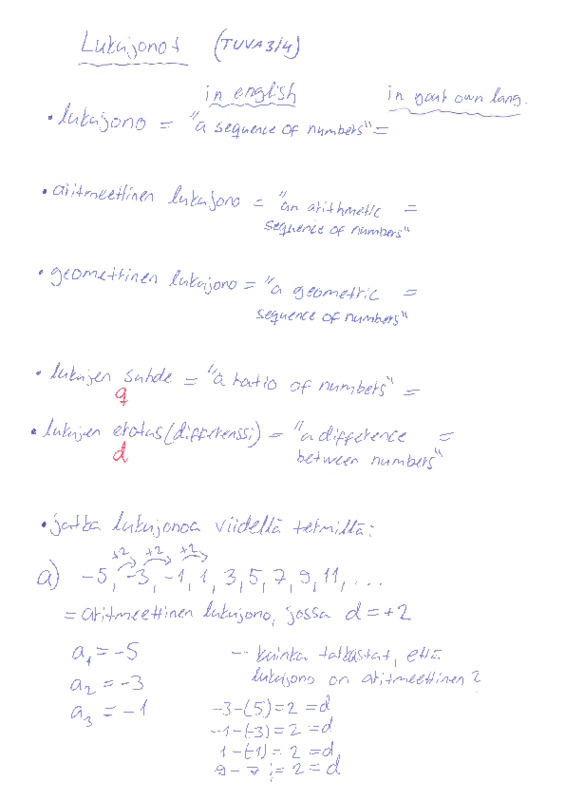 Lukujonot (TUVA3/4)
in english in your own lang.
• lukujono = "a sequence of numbers" =
• aritmeettinen lukujono = "an arithmetic =
sequence of numbers"
• geometrinen lukujono = "a geometric =
sequence of numbers"
• lukujen suhde = "a ratio of numbers" =
q
• lukujen erotus (differenssi) = "a difference =
d between numbers"
• jatka lukujonoa viidellä termillä:
+2 +2 +2
a) -5, -3, -1, 1, 3, 5, 7, 9, 11, ...
= aritmeettinen lukujono, jossa d = +2
a₁ = -5 - kuinka tarkastat, että
a₂ = -3 lukujono on aritmeettinen?
a₃ = -1 -3-(5) = 2 = d
-1-(-3) = 2 = d
1-(-1) = 2 = d
9 - 7 = 2 = d